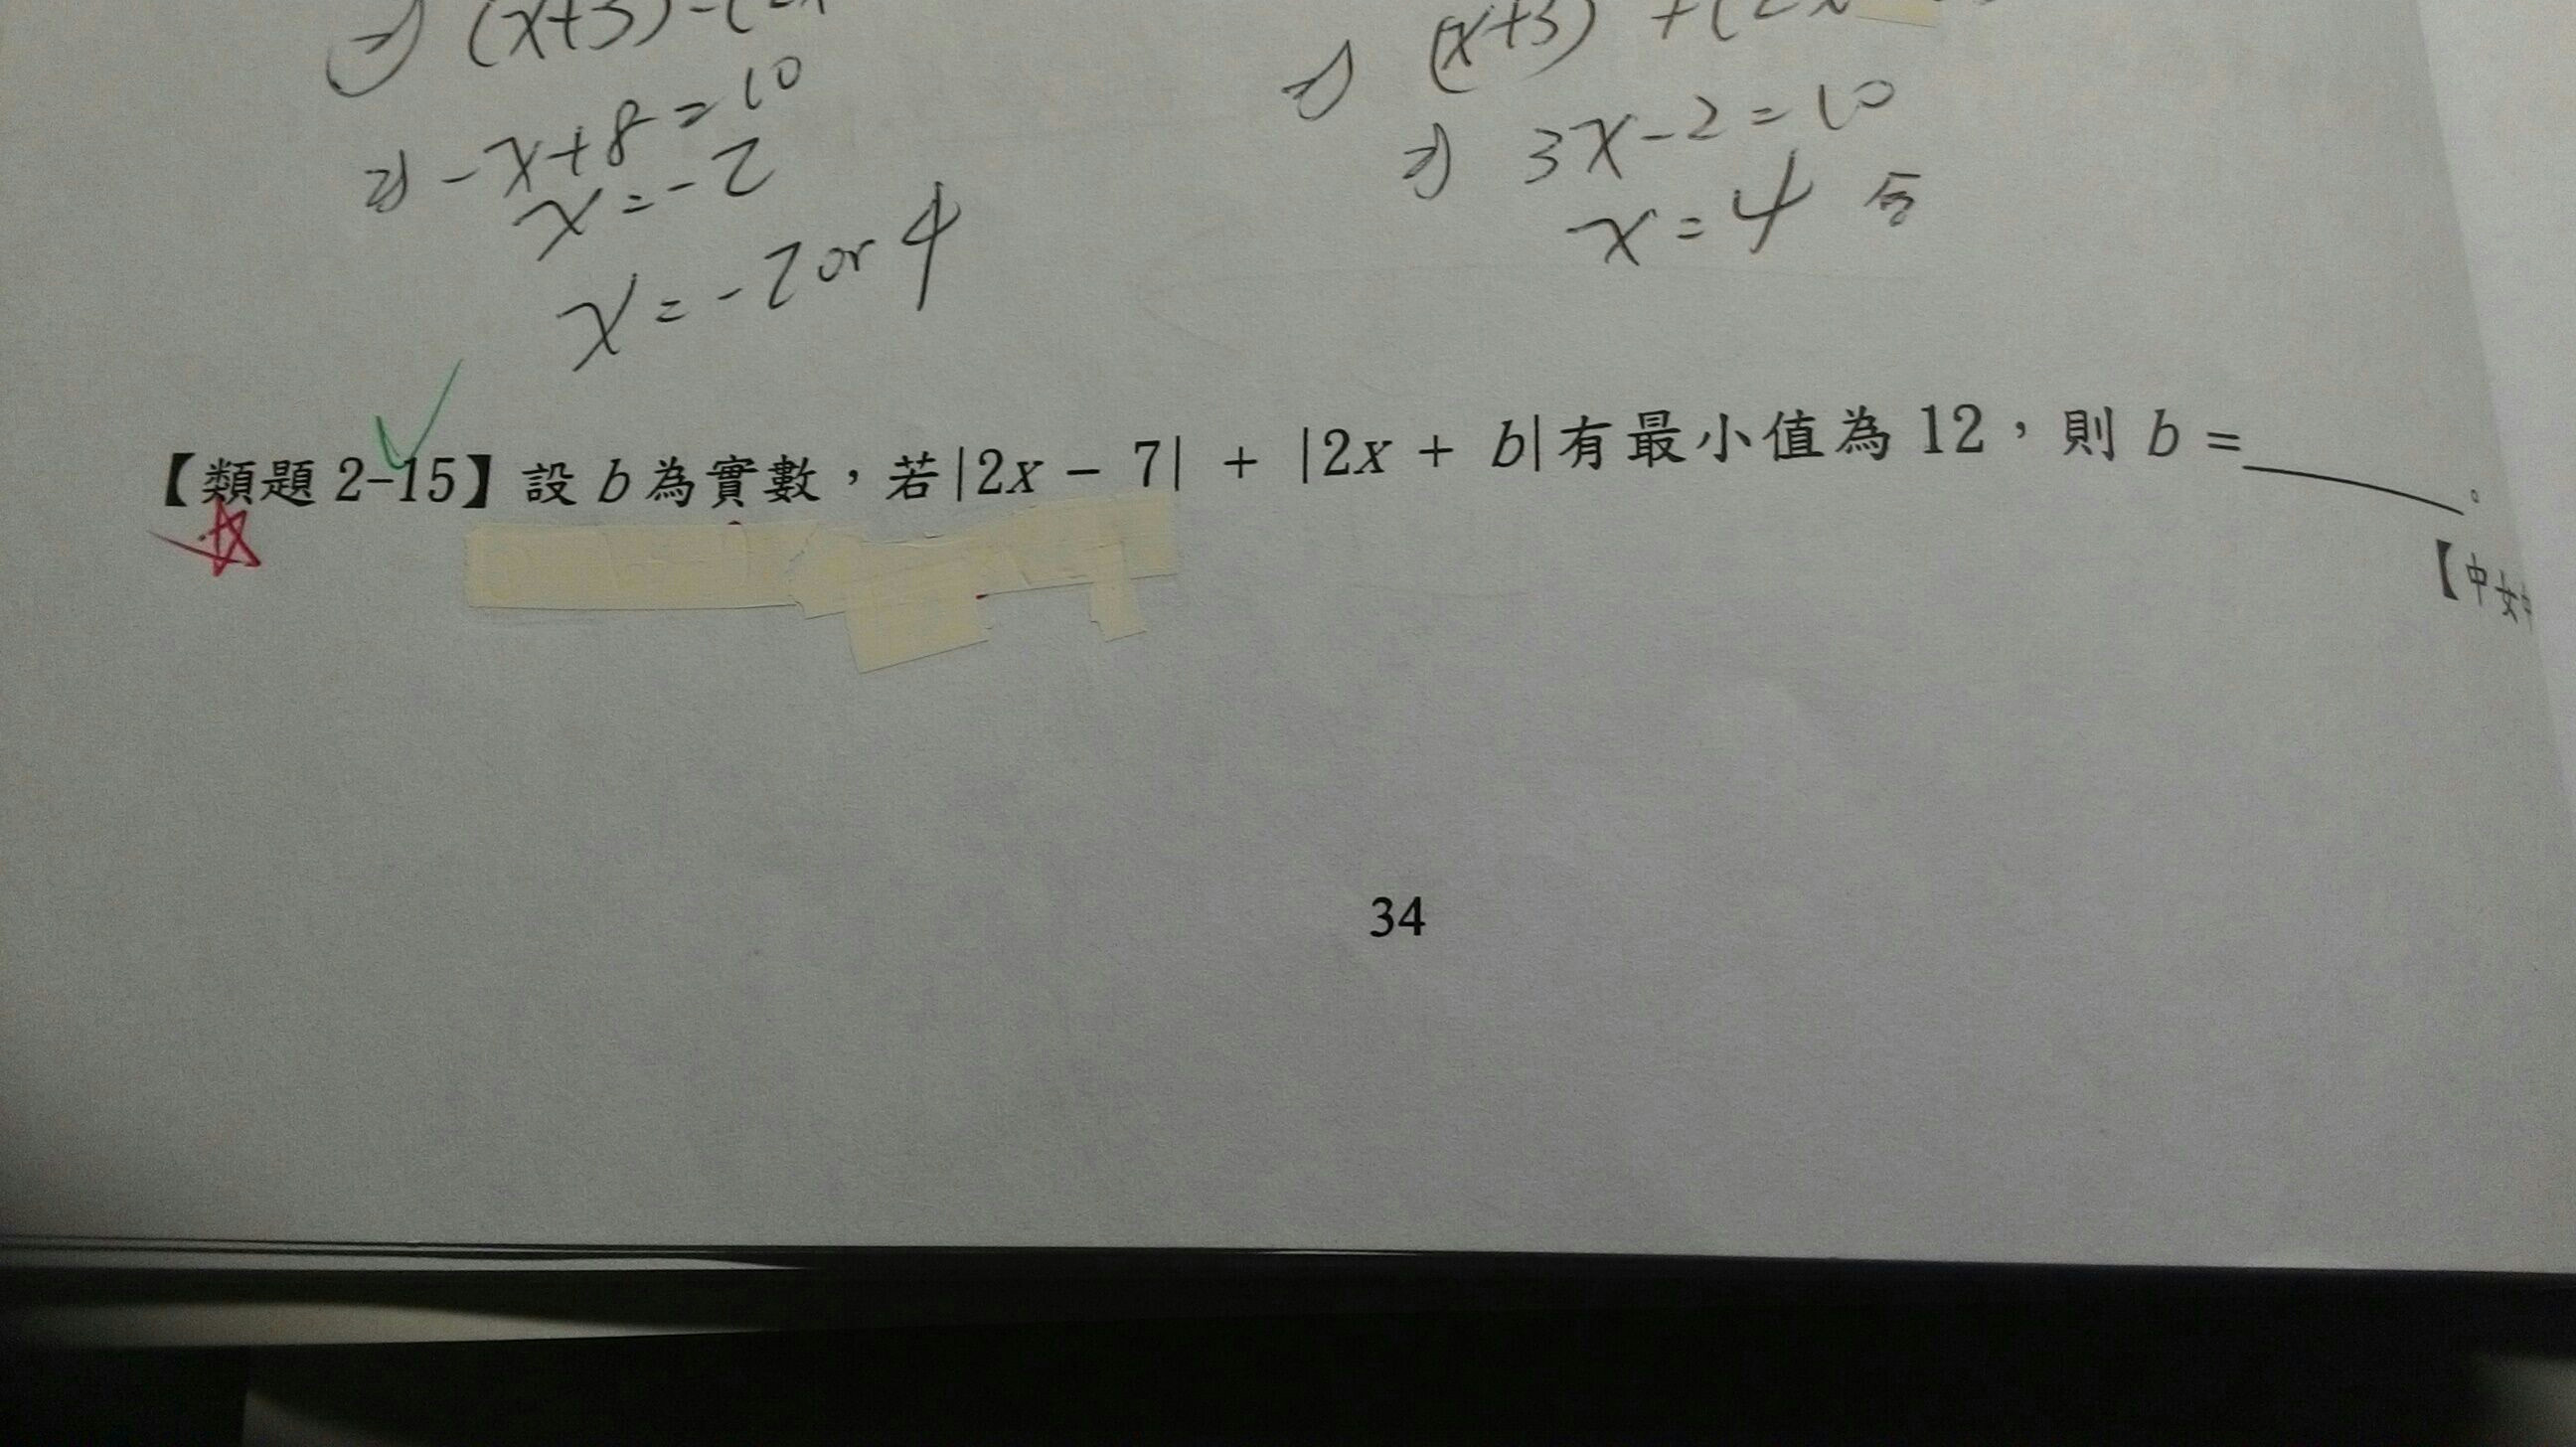 ⇒ (x+3)-(2x
⇒ -x+8=10
x=-2
x=-2 or 4
⇒ (x+3)+(2x
⇒ 3x-2=10
x=4 合
【類題 2-15】設 b 為實數，若|2x - 7| + |2x + b|有最小值為 12，則 b =______。
【中女中
34